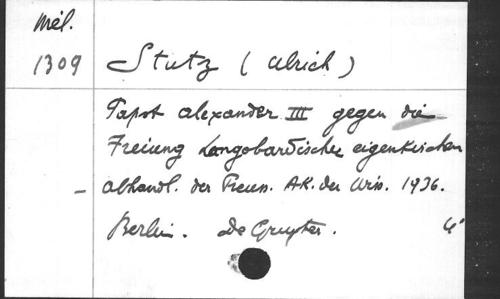 Mél.
1309 Stutz (Ulrich)
Papst Alexander III gegen die
Freiung Langobardischer eigenkirchen
- Abhandl. der Preuss. AK. der Wiss. 1936.
Berlin. De Gruyter. 4°